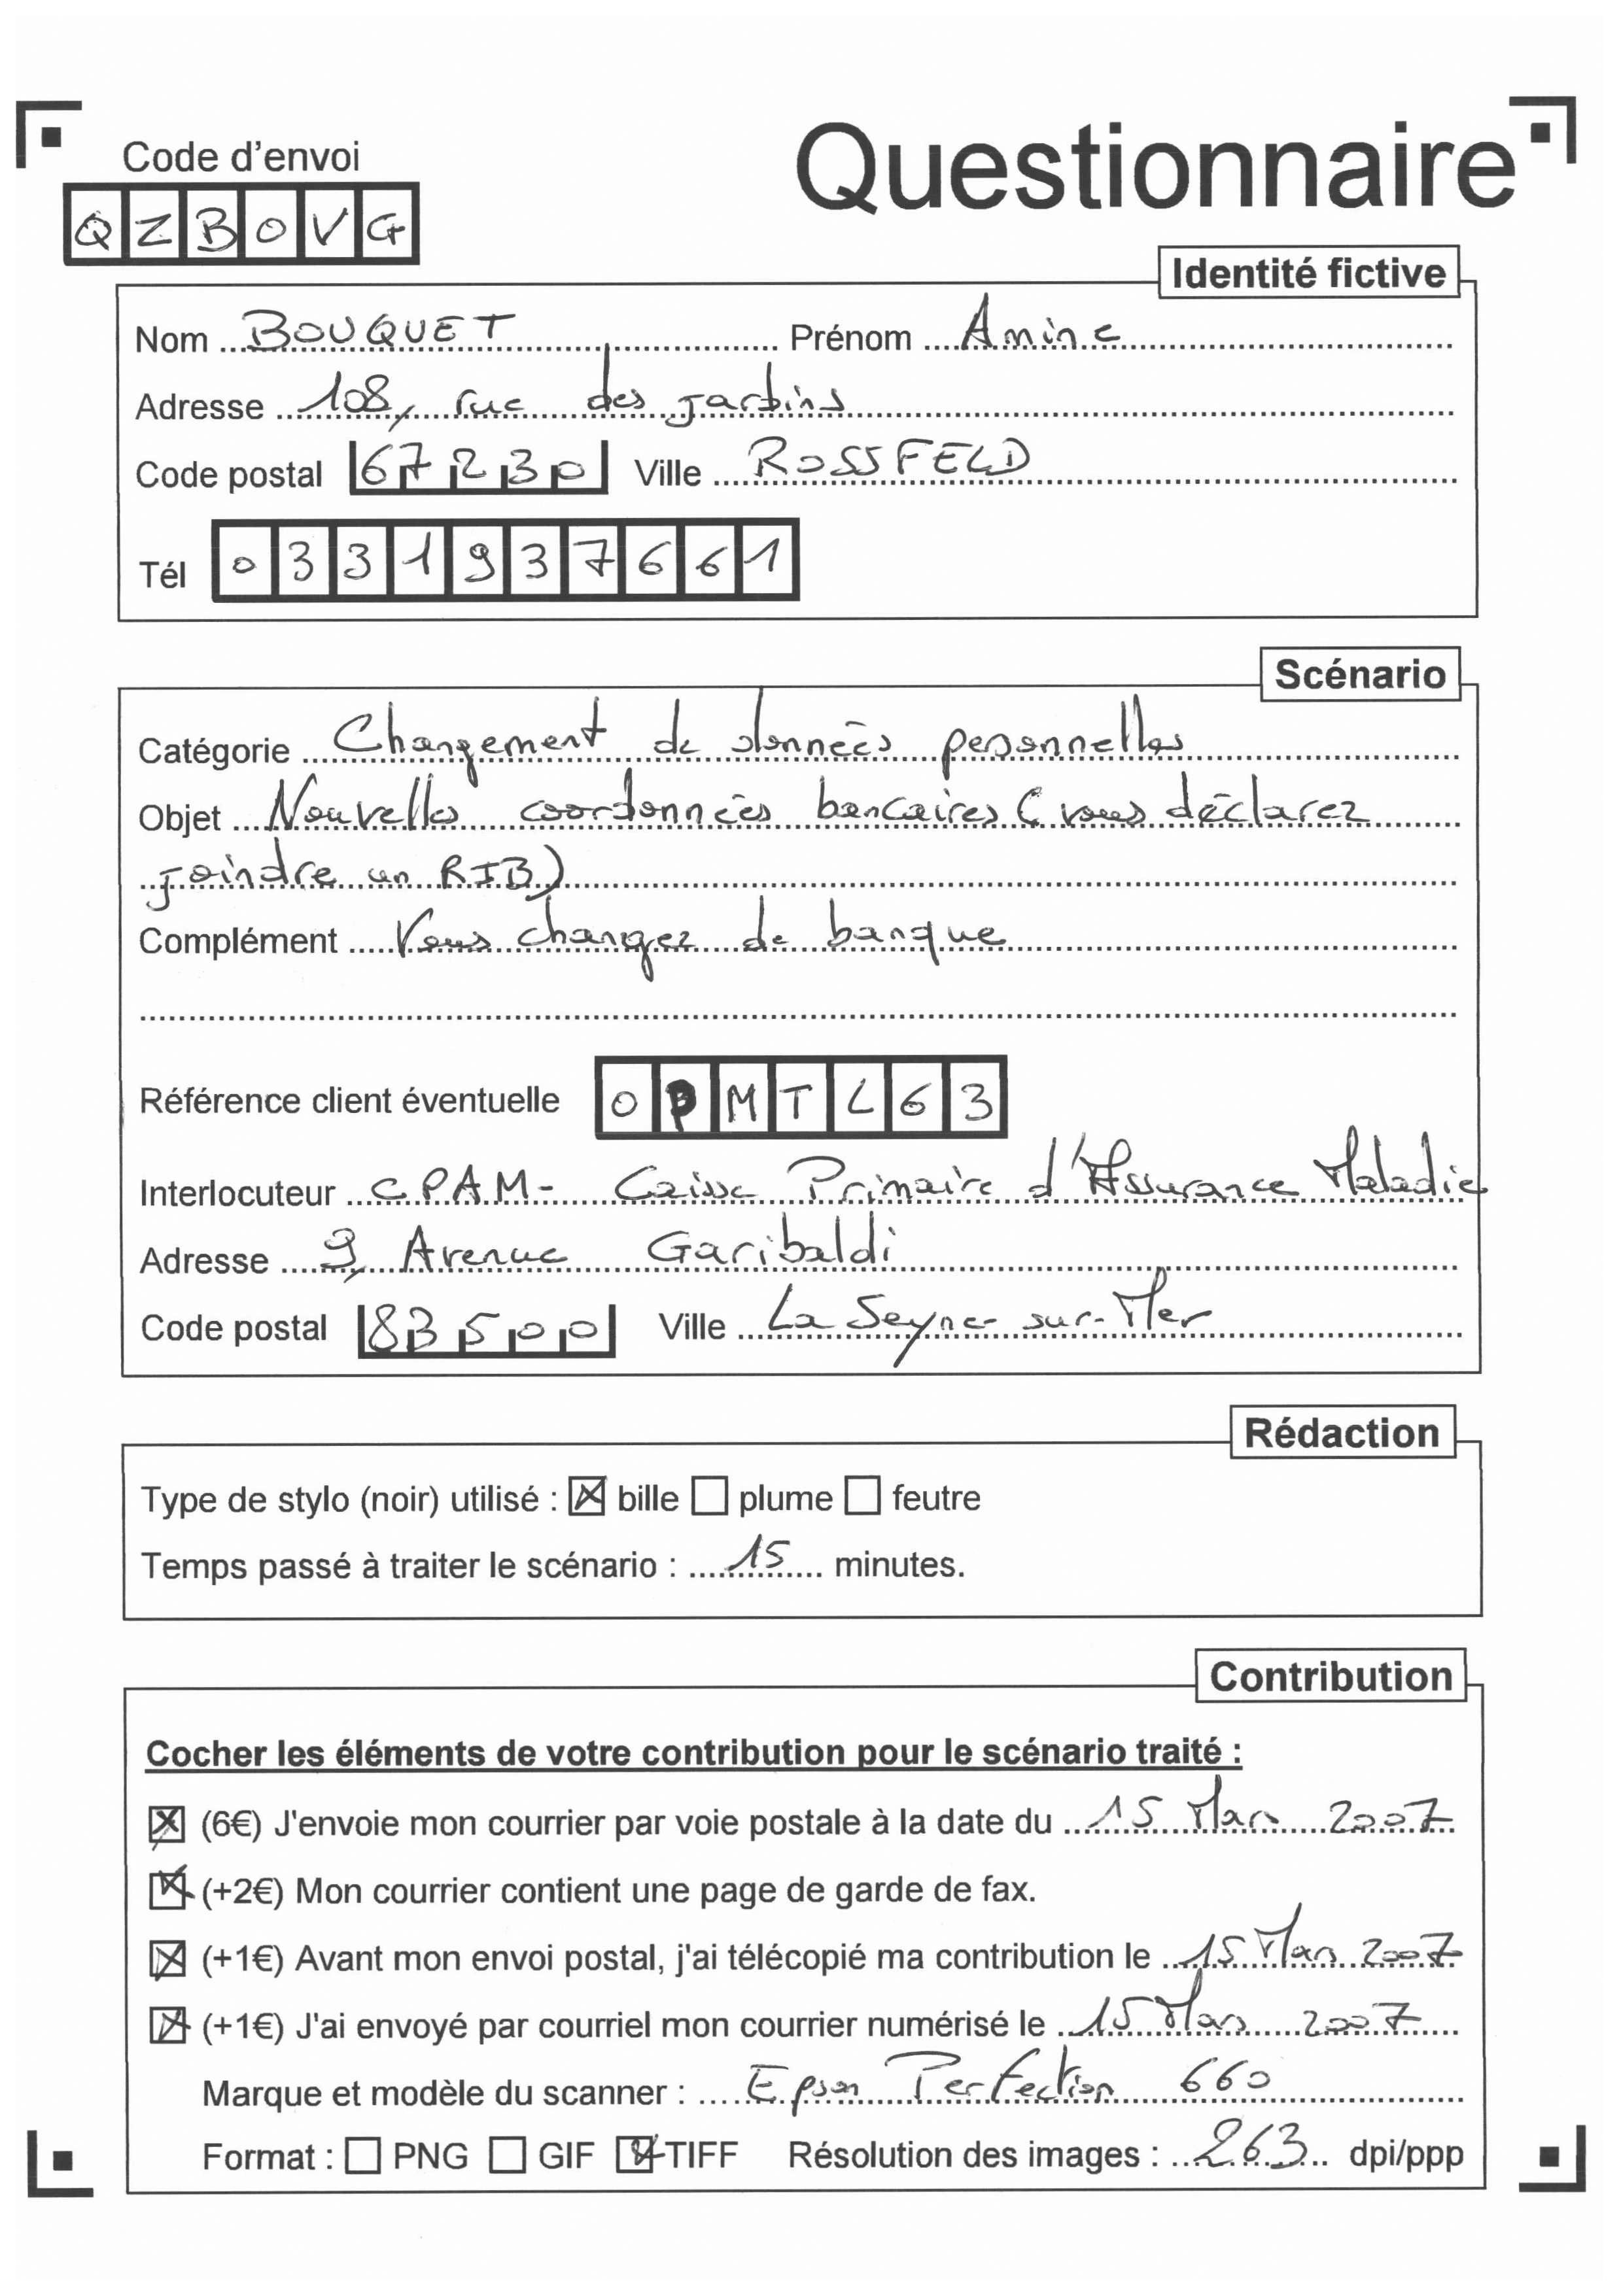 Questionnaire
Code d'envoi
QZBOVG
Identité fictive
Nom BOUQUET Prénom Amine
Adresse 108, rue des jardins
Code postal 67230 Ville ROSSFELD
Tél 0331937661
Scénario
Catégorie Changement de données pesonnelles
Objet Nouvelles coordonnées bancaires (vous déclarez
joindre un RIB)
Complément Vous changez de banque
Référence client éventuelle OPMTL63
Interlocuteur CPAM - Caisse Primaire d'Assurance Maladie
Adresse 9, Avenue Garibaldi
Code postal 83500 Ville La Seyne-sur-Mer
Rédaction
Type de stylo (noir) utilisé : bille plume feutre
Temps passé à traiter le scénario : 15 minutes.
Contribution
Cocher les éléments de votre contribution pour le scénario traité :
(6€) J'envoie mon courrier par voie postale à la date du 15 Mars 2007
(+2€) Mon courrier contient une page de garde de fax.
(+1€) Avant mon envoi postal, j'ai télécopié ma contribution le 15 Mars 2007
(+1€) J'ai envoyé par courriel mon courrier numérisé le 15 Mars 2007
Marque et modèle du scanner : Epson Perfection 660
Format : PNG GIF TIFF Résolution des images : 263 dpi/ppp